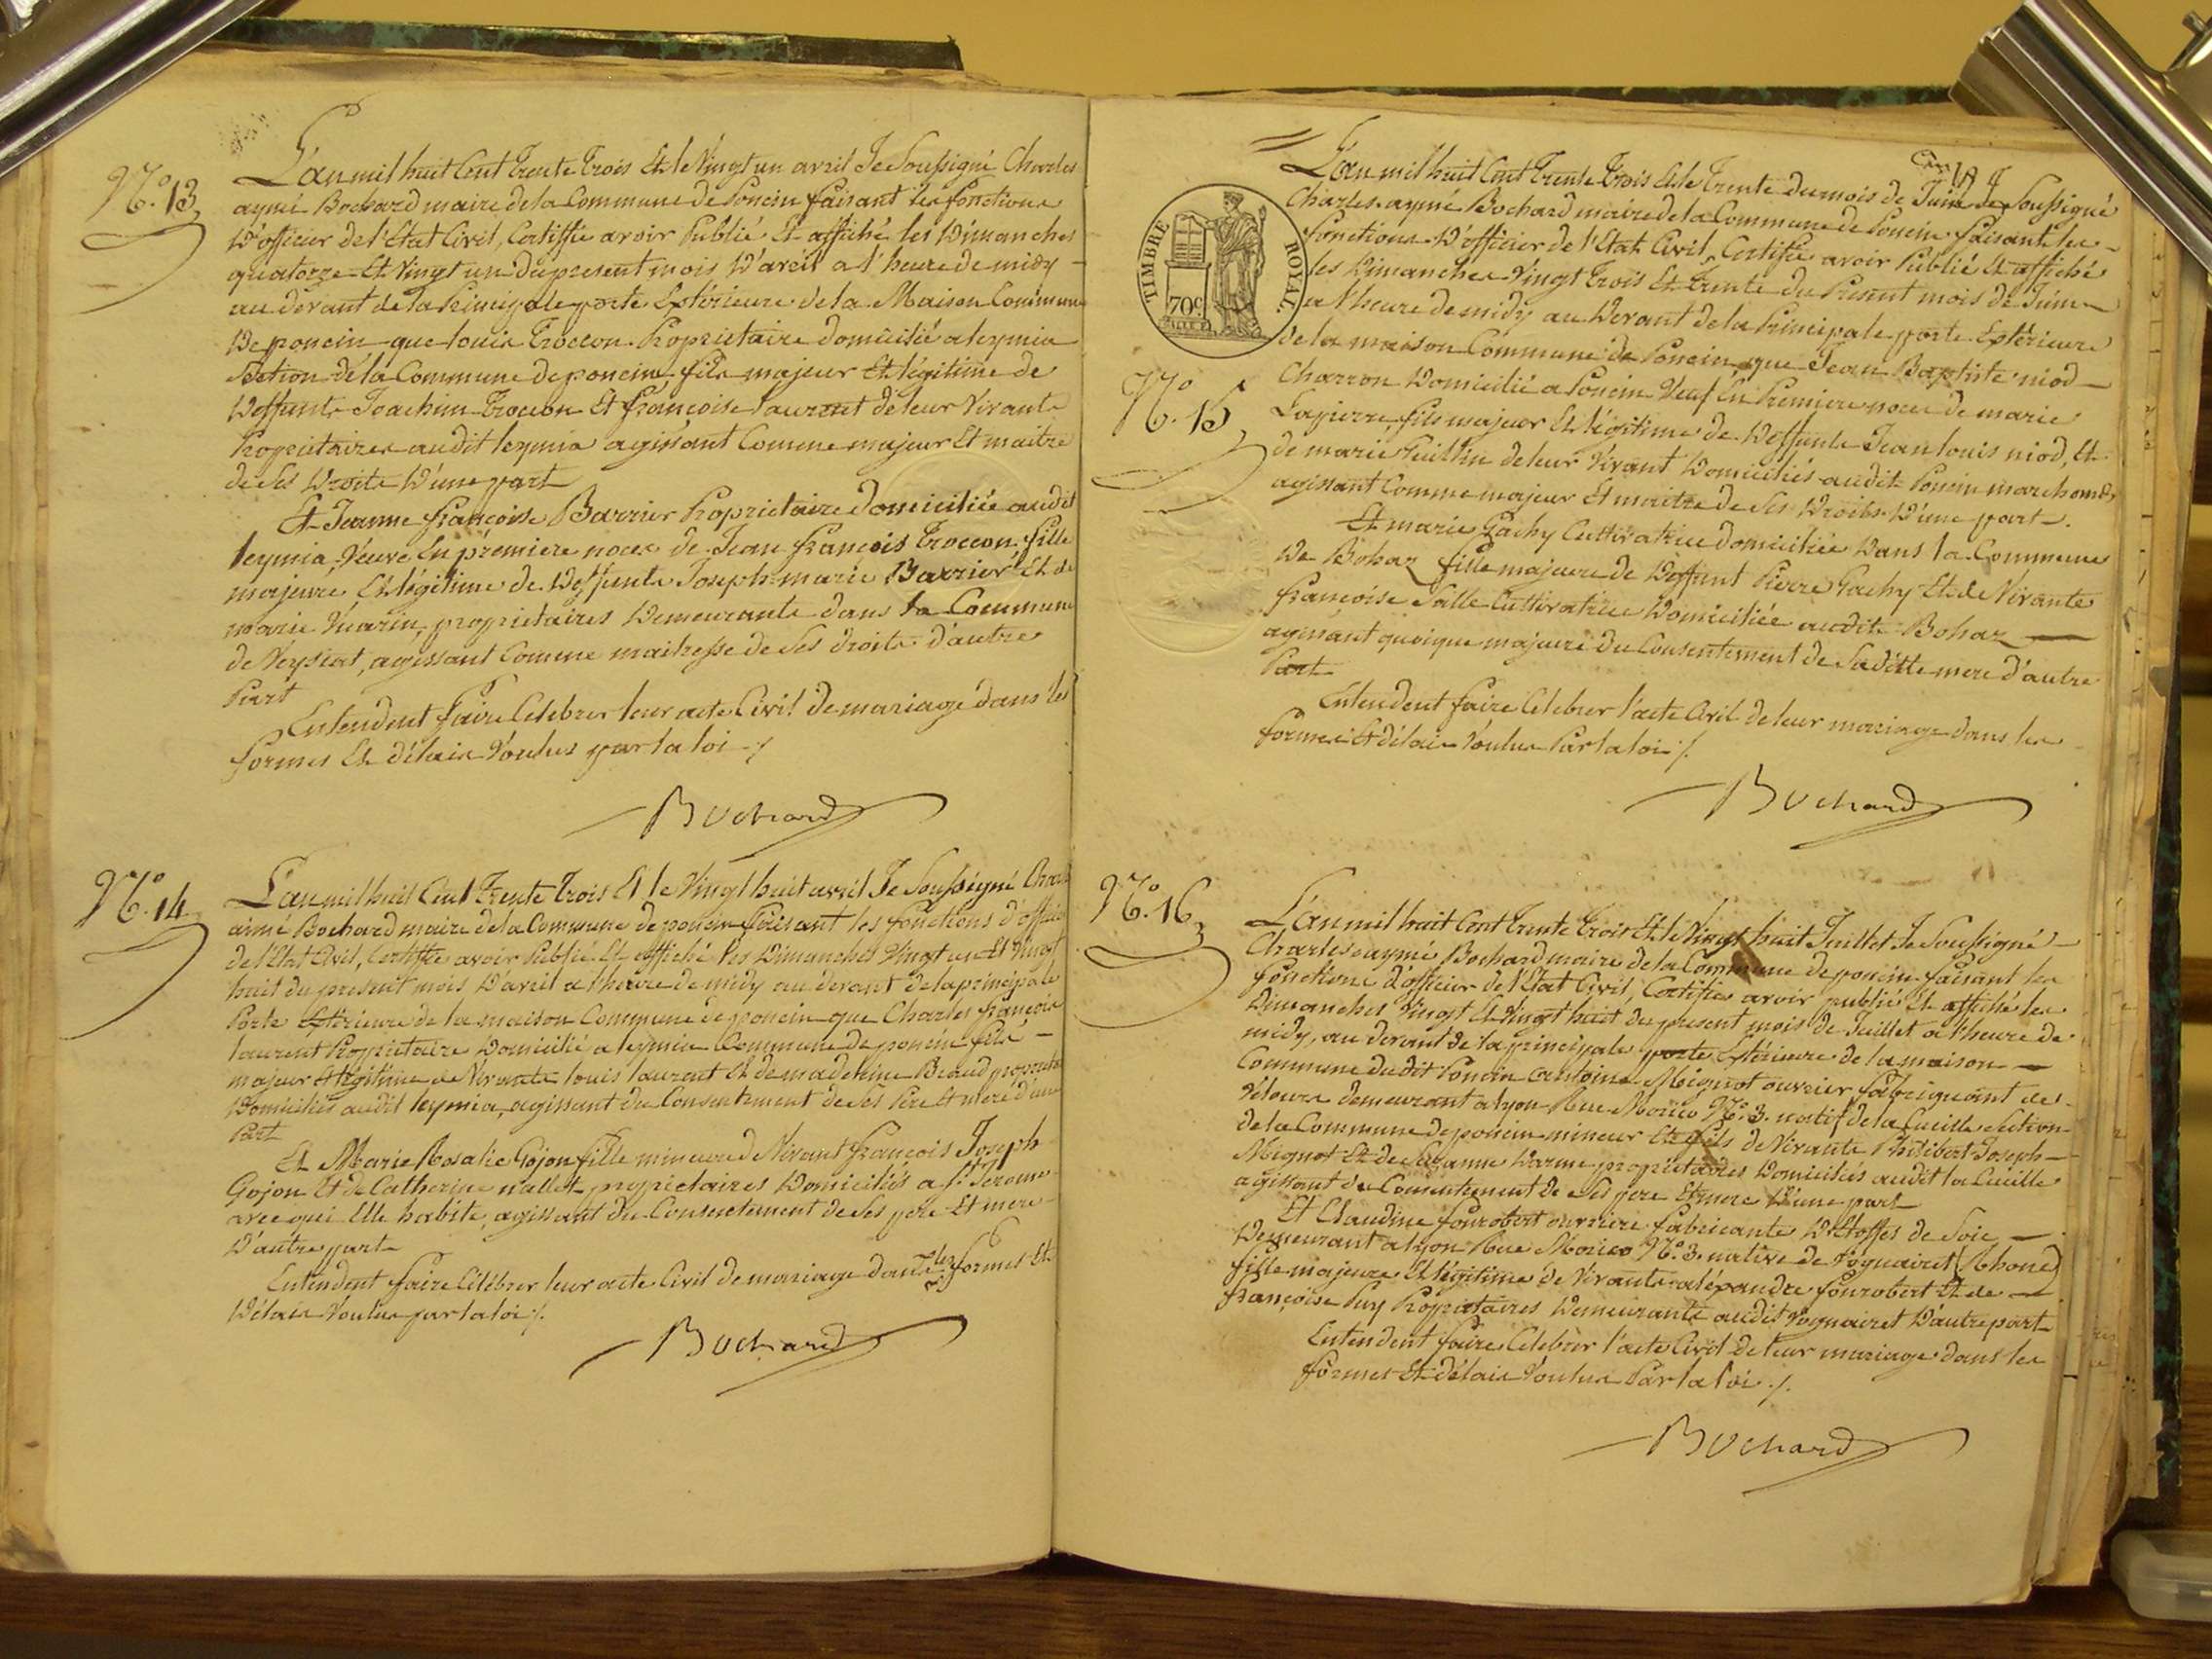 N.° 13
L'an mil huit Cent Trente Trois Et le Vingt un avril Je Soussigné Charles
aymé Bochard maire de la Commune de Poncin faisant les fonctions
D'officier de l'Etat Civil, Certiffie avoir Publié Et affiché les Dimanches
quatorze Et Vingt un du present mois D'avril a l'heure de midy
au devant de la Principale porte Extérieure de la Maison Commune
De poncin que louis Troccon Propriétaire domicilié a leymia
Section de la Commune de poncin fils majeur Et légitime de
Deffunts Joachim Troccon Et françoise laurent de leur Vivants
Propriétaires audit leymia agissant Comme majeur Et maitre
de Ses Droits D'une part
Et Jeanne françoise Barrier Propriétaire domiciliée audit
leymia Veuve En premiere noces de Jean françois Troccon fille
majeure Et légitime de Deffunts Joseph marie Barrier Et de
marie Marin, propriétaires Demeurants dans la Commune
de Veyziat, agissant Comme maitresse de Ses droits d'autre
Part
Entendent faire Célébrer leur acte Civil de mariage dans les
formes Et délais Voulus par la loi ./.
Bochard
N.° 14
L'an mil huit Cent Trente Trois Et le Vingt huit avril Je Soussigné Charles
aimé Bochard maire de la Commune de poncin faisant les fonctions d'officier
de l'Etat Civil, Certiffie avoir Publié Et affiché les Dimanches Vingt un Et Vingt
huit du present mois D'avril a l'heure de midy au devant de la principale
Porte Extérieure de la maison Commune de poncin que Charles françois
laurent Propriétaire Domicilié a leymia Commune de poncin fils
majeur Et légitime de Vivants louis laurent Et de madeleine Beaud propriétaires
Domiciliés audit leymia, agissant du Consentement de Ses Pere Et mere d'une
Part
Et Marie Rosalie Gojon fille mineure de Vivant françois Joseph
Gojon Et de Catherine nallet propriétaires Domiciliés a S.t Jerome
avec qui Elle habite, agissant du Consentement de Ses pere Et mere
D'autre part
Entendent faire Célébrer leur acte Civil de mariage dans les formes Et
Délais Voulus par la loi ./.
Bochard
TIMBRE ROYAL.
70c.
N.° 15
L'an mil huit Cent Trente Trois Et le Trente du mois de Juin Je Soussigné
Charles aymé Bochard maire de la Commune de Poncin faisant les
fonctions D'officier de l'Etat Civil, Certifie avoir Publié Et affiché
les Dimanches Vingt Trois Et Trente du Present mois de Juin
a l'heure de midy au Devant de la Principale porte Extérieure
de la maison Commune de Poncin, que Jean Baptiste niod
Charron Domicilié a Poncin Veuf En Premiere noces de marie
Lapierre fils majeur Et légitime de Deffunts Jean louis niod, Et
de marie Guillin de leur Vivant Domiciliés audit Poncin marchands
agissant Comme majeur Et maitre de Ses Droits D'une part.
Et marie Pachy Cultivatrice domiciliée Dans la Commune
De Bohaz fille majeure de Deffunt Pierre Pachy Et de Vivante
françoise Salle Cultivatrice Domiciliée audit Bohaz
agissant quoique majeure du Consentement de Sa ditte mere d'autre
Part
Entendent faire Célébrer l'acte Civil de leur mariage dans les
formes Et délais Voulus Par la loi ./.
Bochard
N.° 16
L'an mil huit Cent Trente Trois Et le Vingt huit Juillet Je Soussigné
Charles aymé Bochard maire de la Commune de poncin faisant les
fonctions d'officier de l'Etat Civil, Certifie avoir publié Et affiché les
Dimanches Vingt Et Vingt huit du present mois de Juillet a l'heure de
midy, au devant de la principale porte Extérieure de la maison
Commune dudit Poncin Antoine Mignot ouvrier fabriquant de
Velours demeurant a lyon Rue N.° 3. natif de la Cueille Section
de la Commune de poncin mineur Et fils de Vivants Philibert Joseph
Mignot Et de Suzanne Darme propriétaires Domiciliés audit la Cueille
agissant du Consentement de Ses pere Et mere D'une part
Et Claudine fourobert ouvriere fabricante D'Etoffes de Soie
Demeurant a lyon Rue N.° 3. native de Vognairet (Rhone)
fille majeure Et légitime de Vivants alépandre fourobert Et de
françoise Puy Propriétaires Demeurants audit Vognairet D'autre part
Entendent faire Célébrer l'acte Civil de leur mariage dans les
formes Et délais Voulus Par la loi ./.
Bochard